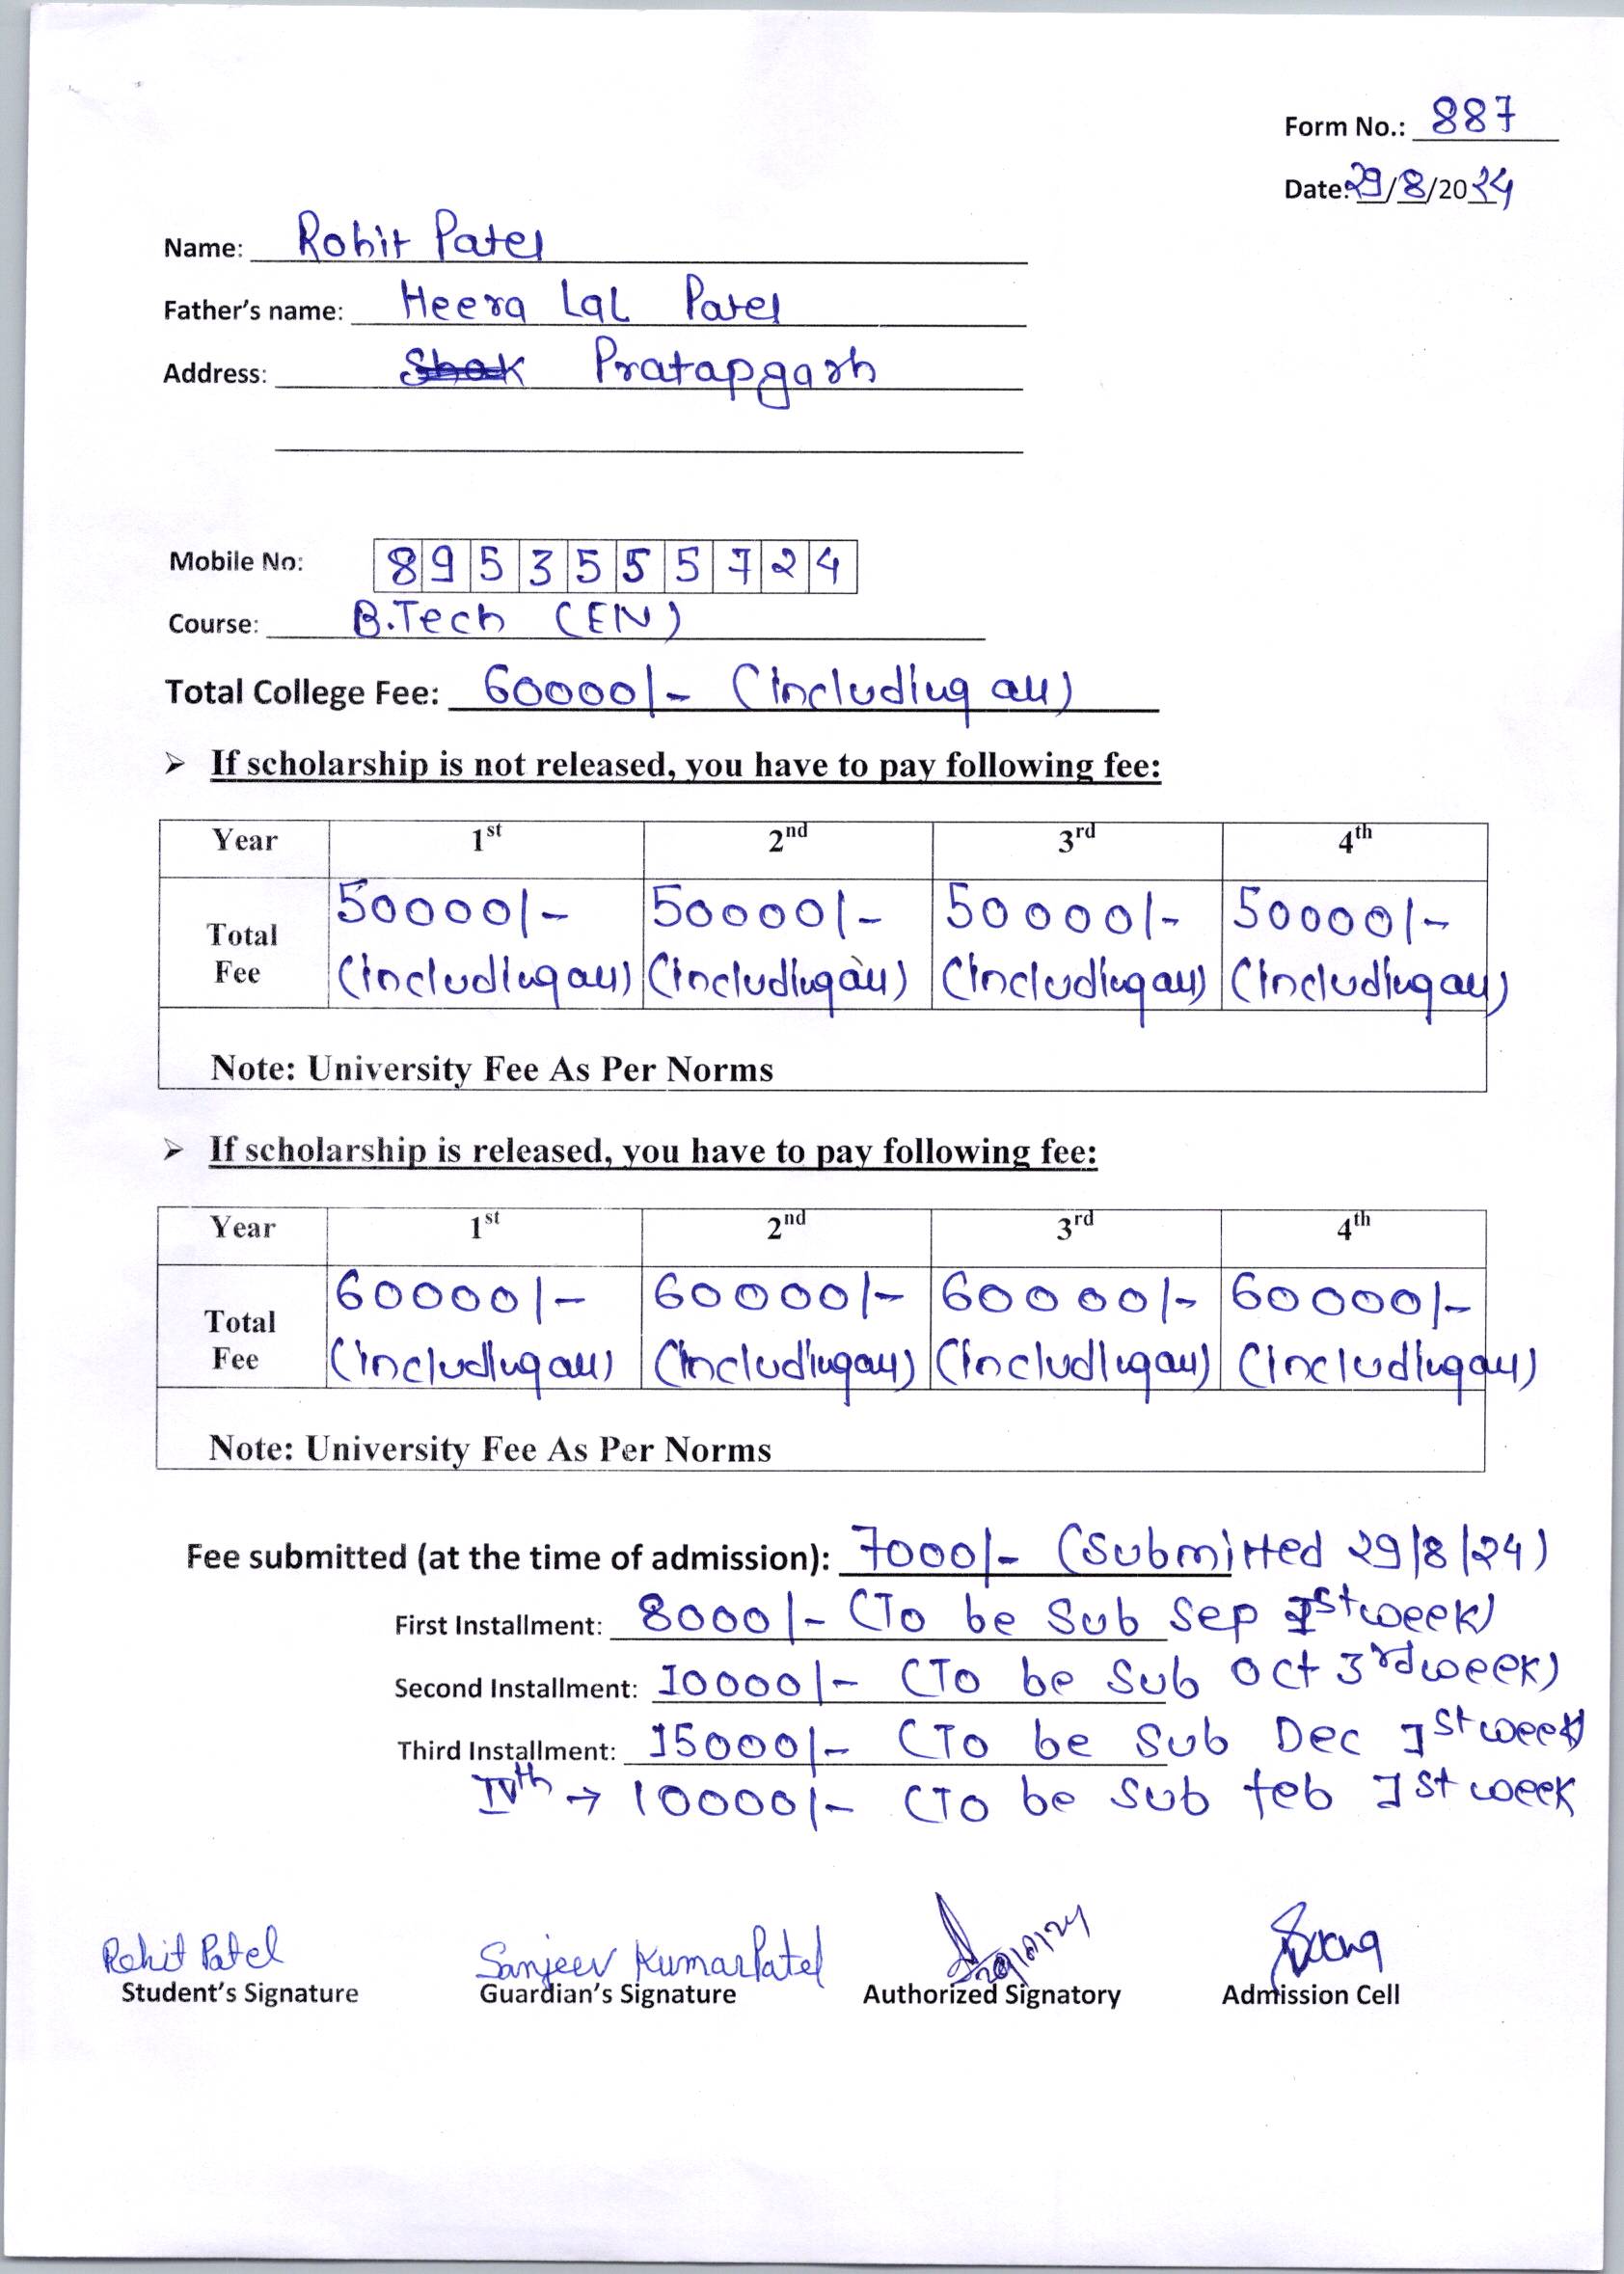 Form No.: 887
Date: 29/8/2024
Name: Rohit Patel
Father's name: Heera Lal Patel
Address: Pratapgarh
Mobile No: 8953555724
Course: B.Tech (EN)
Total College Fee: 60000/- (including all)
➢ If scholarship is not released, you have to pay following fee:
Year 1st 2nd 3rd 4th
Total Fee 50000/- (including all) 50000/- (including all) 50000/- (including all) 50000/- (including all)
Note: University Fee As Per Norms
➢ If scholarship is released, you have to pay following fee:
Year 1st 2nd 3rd 4th
Total Fee 60000/- (including all) 60000/- (including all) 60000/- (including all) 60000/- (including all)
Note: University Fee As Per Norms
Fee submitted (at the time of admission): 7000/- (Submitted 29/8/24)
First Installment: 8000/- (To be Sub Sep Ist week)
Second Installment: 10000/- (To be Sub Oct 3rd week)
Third Installment: 15000/- (To be Sub Dec Ist week)
IVth → 10000/- (To be Sub feb Ist week
Rohit Patel Sanjeev Kumar Patel
Student's Signature Guardian's Signature Authorized Signatory Admission Cell